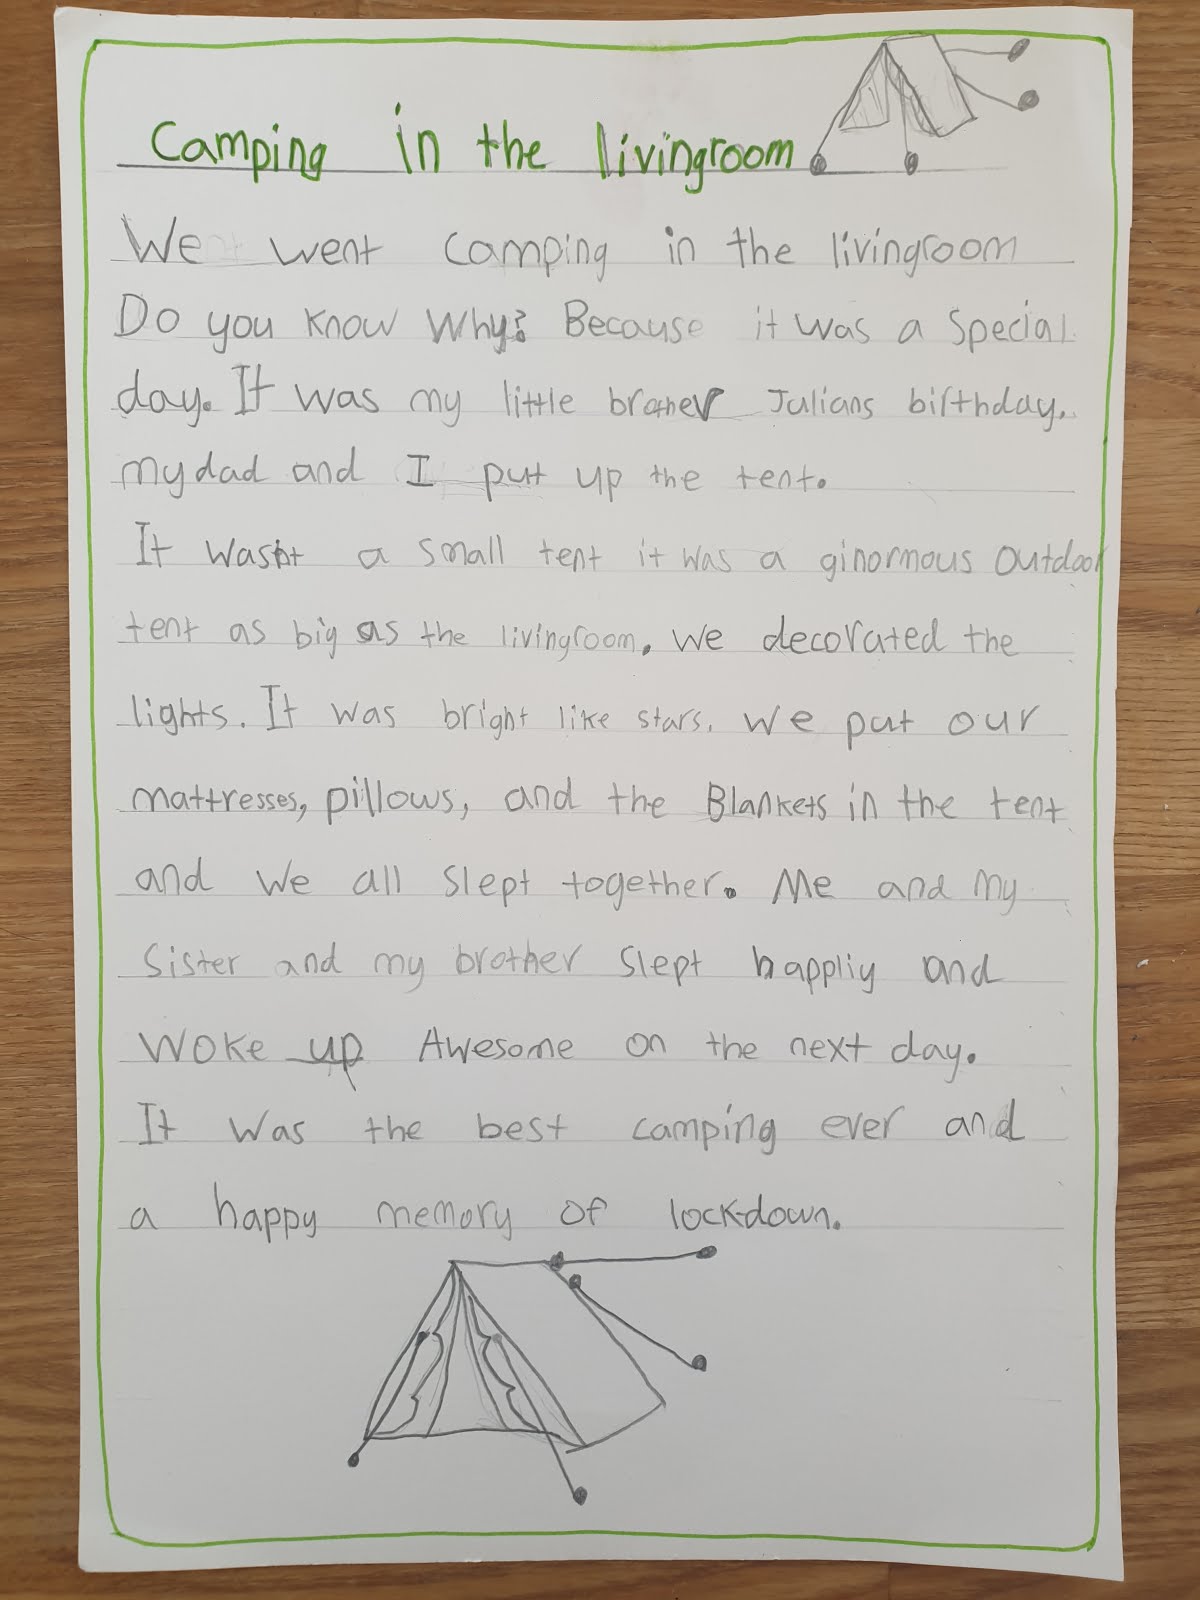 Camping in the livingroom
We went camping in the livingroom
Do you know why? Because it was a special
day. It was my little brother Julians birthday.
my dad and I put up the tent.
It wasnt a small tent it was a ginormous outdoor
tent as big as the livingroom. We decorated the
lights. It was bright like stars. We put our
mattresses, pillows, and the Blankets in the tent
and we all slept together. Me and my
sister and my brother slept happliy and
woke up Awesome on the next day.
It was the best camping ever and
a happy memory of lockdown.